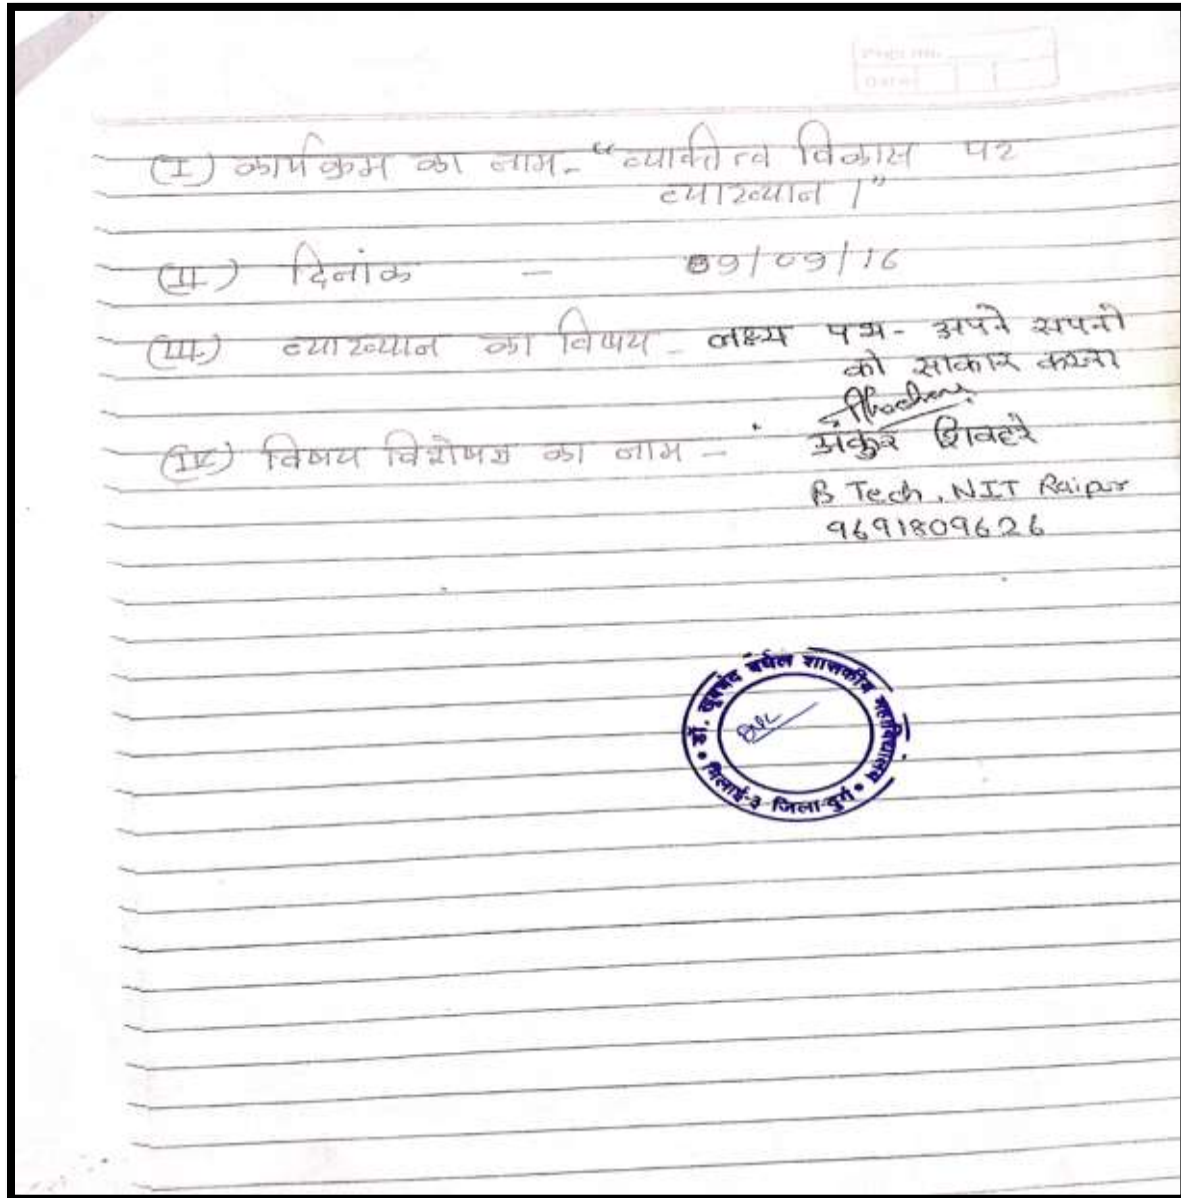 Page No.
Date
(I) कार्यक्रम का नाम - "व्यक्तित्व विकास पर
व्याख्यान।"
(II) दिनांक - 09/09/16
(III) व्याख्यान का विषय - लक्ष्य पथ - अपने सपनो
को साकार करना
(IV) विषय विशेषज्ञ का नाम - अंकुर शिवहरे
B Tech, NIT Raipur
9691809626
डॉ. खूबचंद बघेल शासकीय महाविद्यालय
भिलाई-3 जिला-दुर्ग